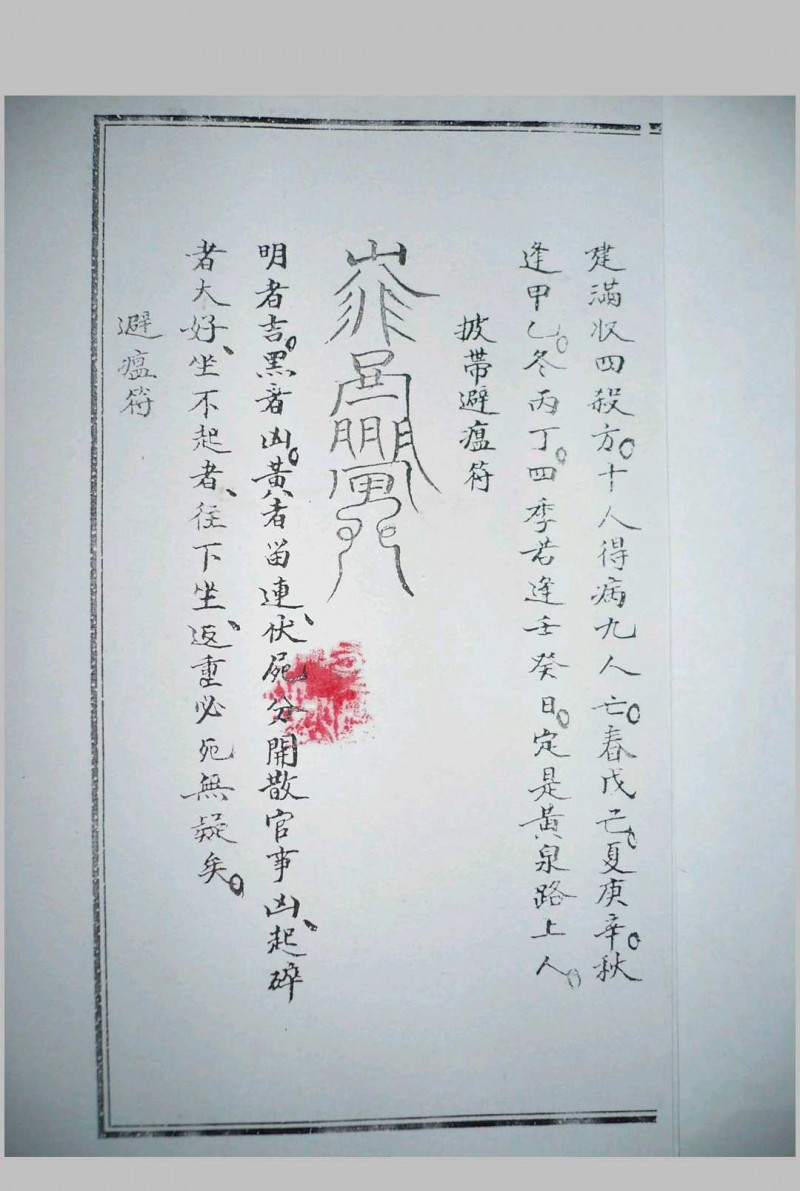 建滿收四殺方。十人得病九人亡。春戊己。夏庚辛。秋
逢甲乙。冬丙丁。四季若逢壬癸日。定是黃泉路上人。
披帶避瘟符
明者吉。黑者凶。黃者留連、伏屍分開散官事凶、起碎
者大好、坐不起者、往下坐、返重必死無疑矣。
避瘟符